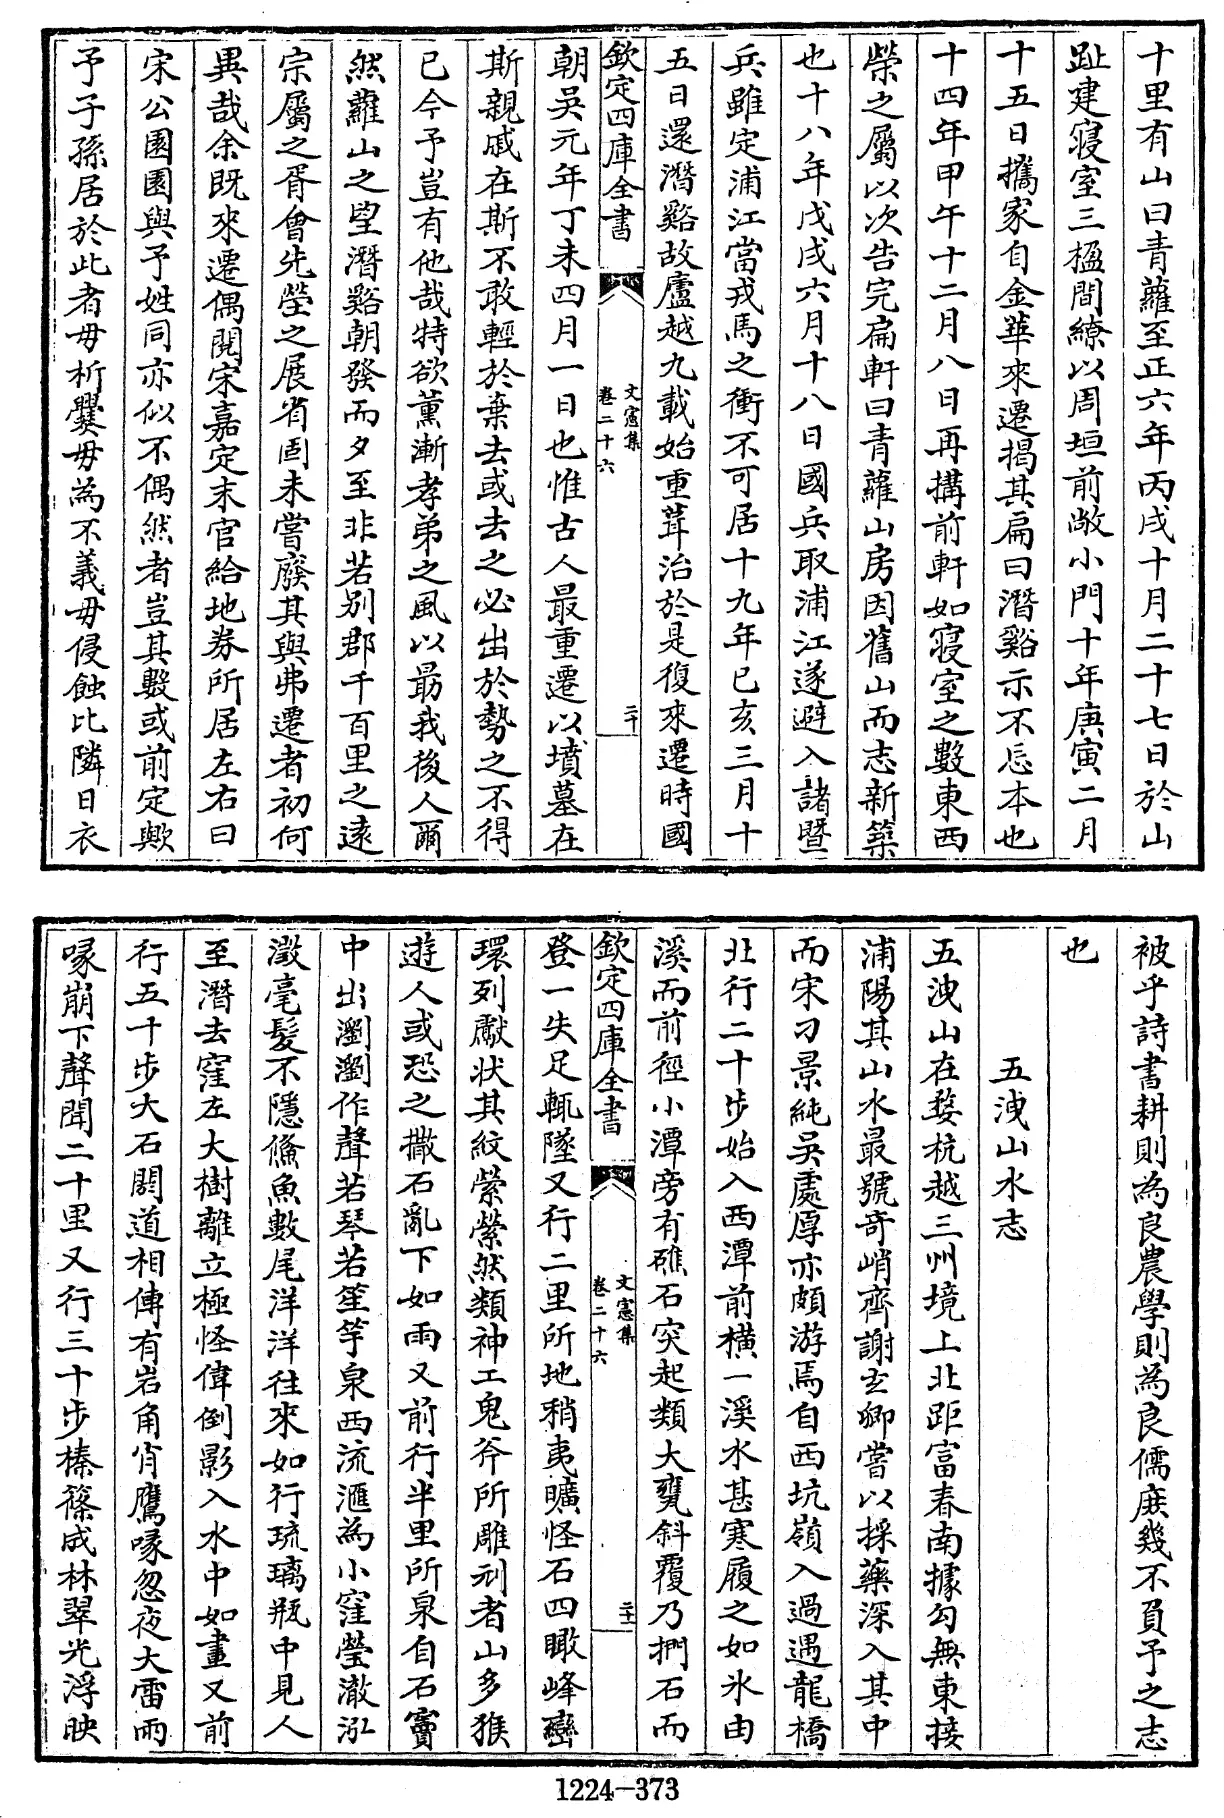 十里有山曰青蘿至正六年丙戌十月二十七日於山
趾建寢室三楹間繚以周垣前敞小門十年庚寅二月
十五日攜家自金華來遷揭其扁曰潛谿示不忘本也
十四年甲午十二月八日再搆前軒如寢室之數東西
榮之屬以次告完扁軒曰青蘿山房因舊山而志新築
也十八年戊戌六月十八日國兵取浦江遂避入諸暨
兵雖定浦江當戎馬之衝不可居十九年己亥三月十
五日還潛谿故廬越九載始重葺治於是復來遷時國
欽定四庫全書
文憲集
卷二十六
二十
朝吳元年丁未四月一日也惟古人最重遷以墳墓在
斯親戚在斯不敢輕於棄去或去之必出於勢之不得
已今予豈有他哉特欲薰漸孝弟之風以勗我後人爾
然蘿山之望潛谿朝發而夕至非若別郡千百里之遠
宗屬之胥會先塋之展省固未嘗廢其與弗遷者初何
異哉余既來遷偶閱宋嘉定末官給地券所居左右曰
宋公園園與予姓同亦似不偶然者豈其數或前定歟
予子孫居於此者毋析爨毋為不義毋侵蝕比隣日衣
被乎詩書耕則為良農學則為良儒庶幾不負予之志
也
五洩山水志
五洩山在婺杭越三州境上北距富春南據勾無東接
浦陽其山水最號奇峭齊謝玄卿嘗以採藥深入其中
而宋刁景純吳處厚亦頗游焉自西坑嶺入過遇龍橋
北行二十步始入西潭前橫一溪水甚寒履之如氷由
溪而前徑小潭旁有礁石突起類大甕斜覆乃捫石而
欽定四庫全書
文憲集
卷二十六
二十一
登一失足輒墜又行二里所地稍夷曠怪石四瞰峰巒
環列獻狀其紋縈縈然類神工鬼斧所雕刓者山多猴
遊人或恐之撒石亂下如雨又前行半里所泉自石竇
中出瀏瀏作聲若琴若笙竽泉西流滙為小窪瑩澈泓
澂毫髮不隱鯈魚數尾洋洋往來如行琉璃瓶中見人
至潛去窪左大樹離立極怪偉倒影入水中如畫又前
行五十步大石閼道相傳有岩角肖鷹喙忽夜大雷雨
喙崩下聲聞二十里又行三十步榛篠成林翠光浮映
1224-373